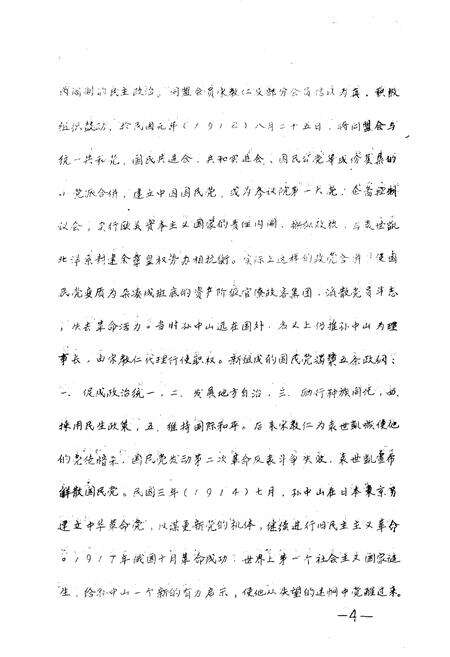 内阁制的民主政治。同盟会宋教仁及部分会员信以为真，积极
组织鼓动，于民国元年（1912）八月二十五日，将同盟会与
统一共和党，国民共进会，共和实进会、国民公党等
小党派合併，建立中国国民党，成为参议院第一大党，企图控制
议会，实行欧美资本主义国家的责任内阁，与袁世凯
北洋系封建余孽皇权势力相抗衡。实际上这样的政党合併，使国
民党变质为杂凑成班底的资产阶级官僚政客集团，涣散党员斗志
，失去革命活力。当时孙中山远在国外，名义上仍推孙中山为理
事长，由宋教仁代理行使职权。新组成的国民党五条政纲：
一、促成政治统一，二、发展地方自治，三、励行种族同化，四、
採用民生政策，五、维持国际和平。后来宋教仁为袁世凯
暗杀，国民党发动第二次革命反袁斗争失败，袁世凯宣布
解散国民党。民国三年（1914）七月，孙中山在日本东京另
建立中华革命党，以谋更新党的机体，继续进行旧民主主义革命
。1917年俄国十月革命成功，世界上第一个社会主义国家诞
生，给孙中山一个新的有力启示，使他从失望的迷惘中觉醒过来。
—4—